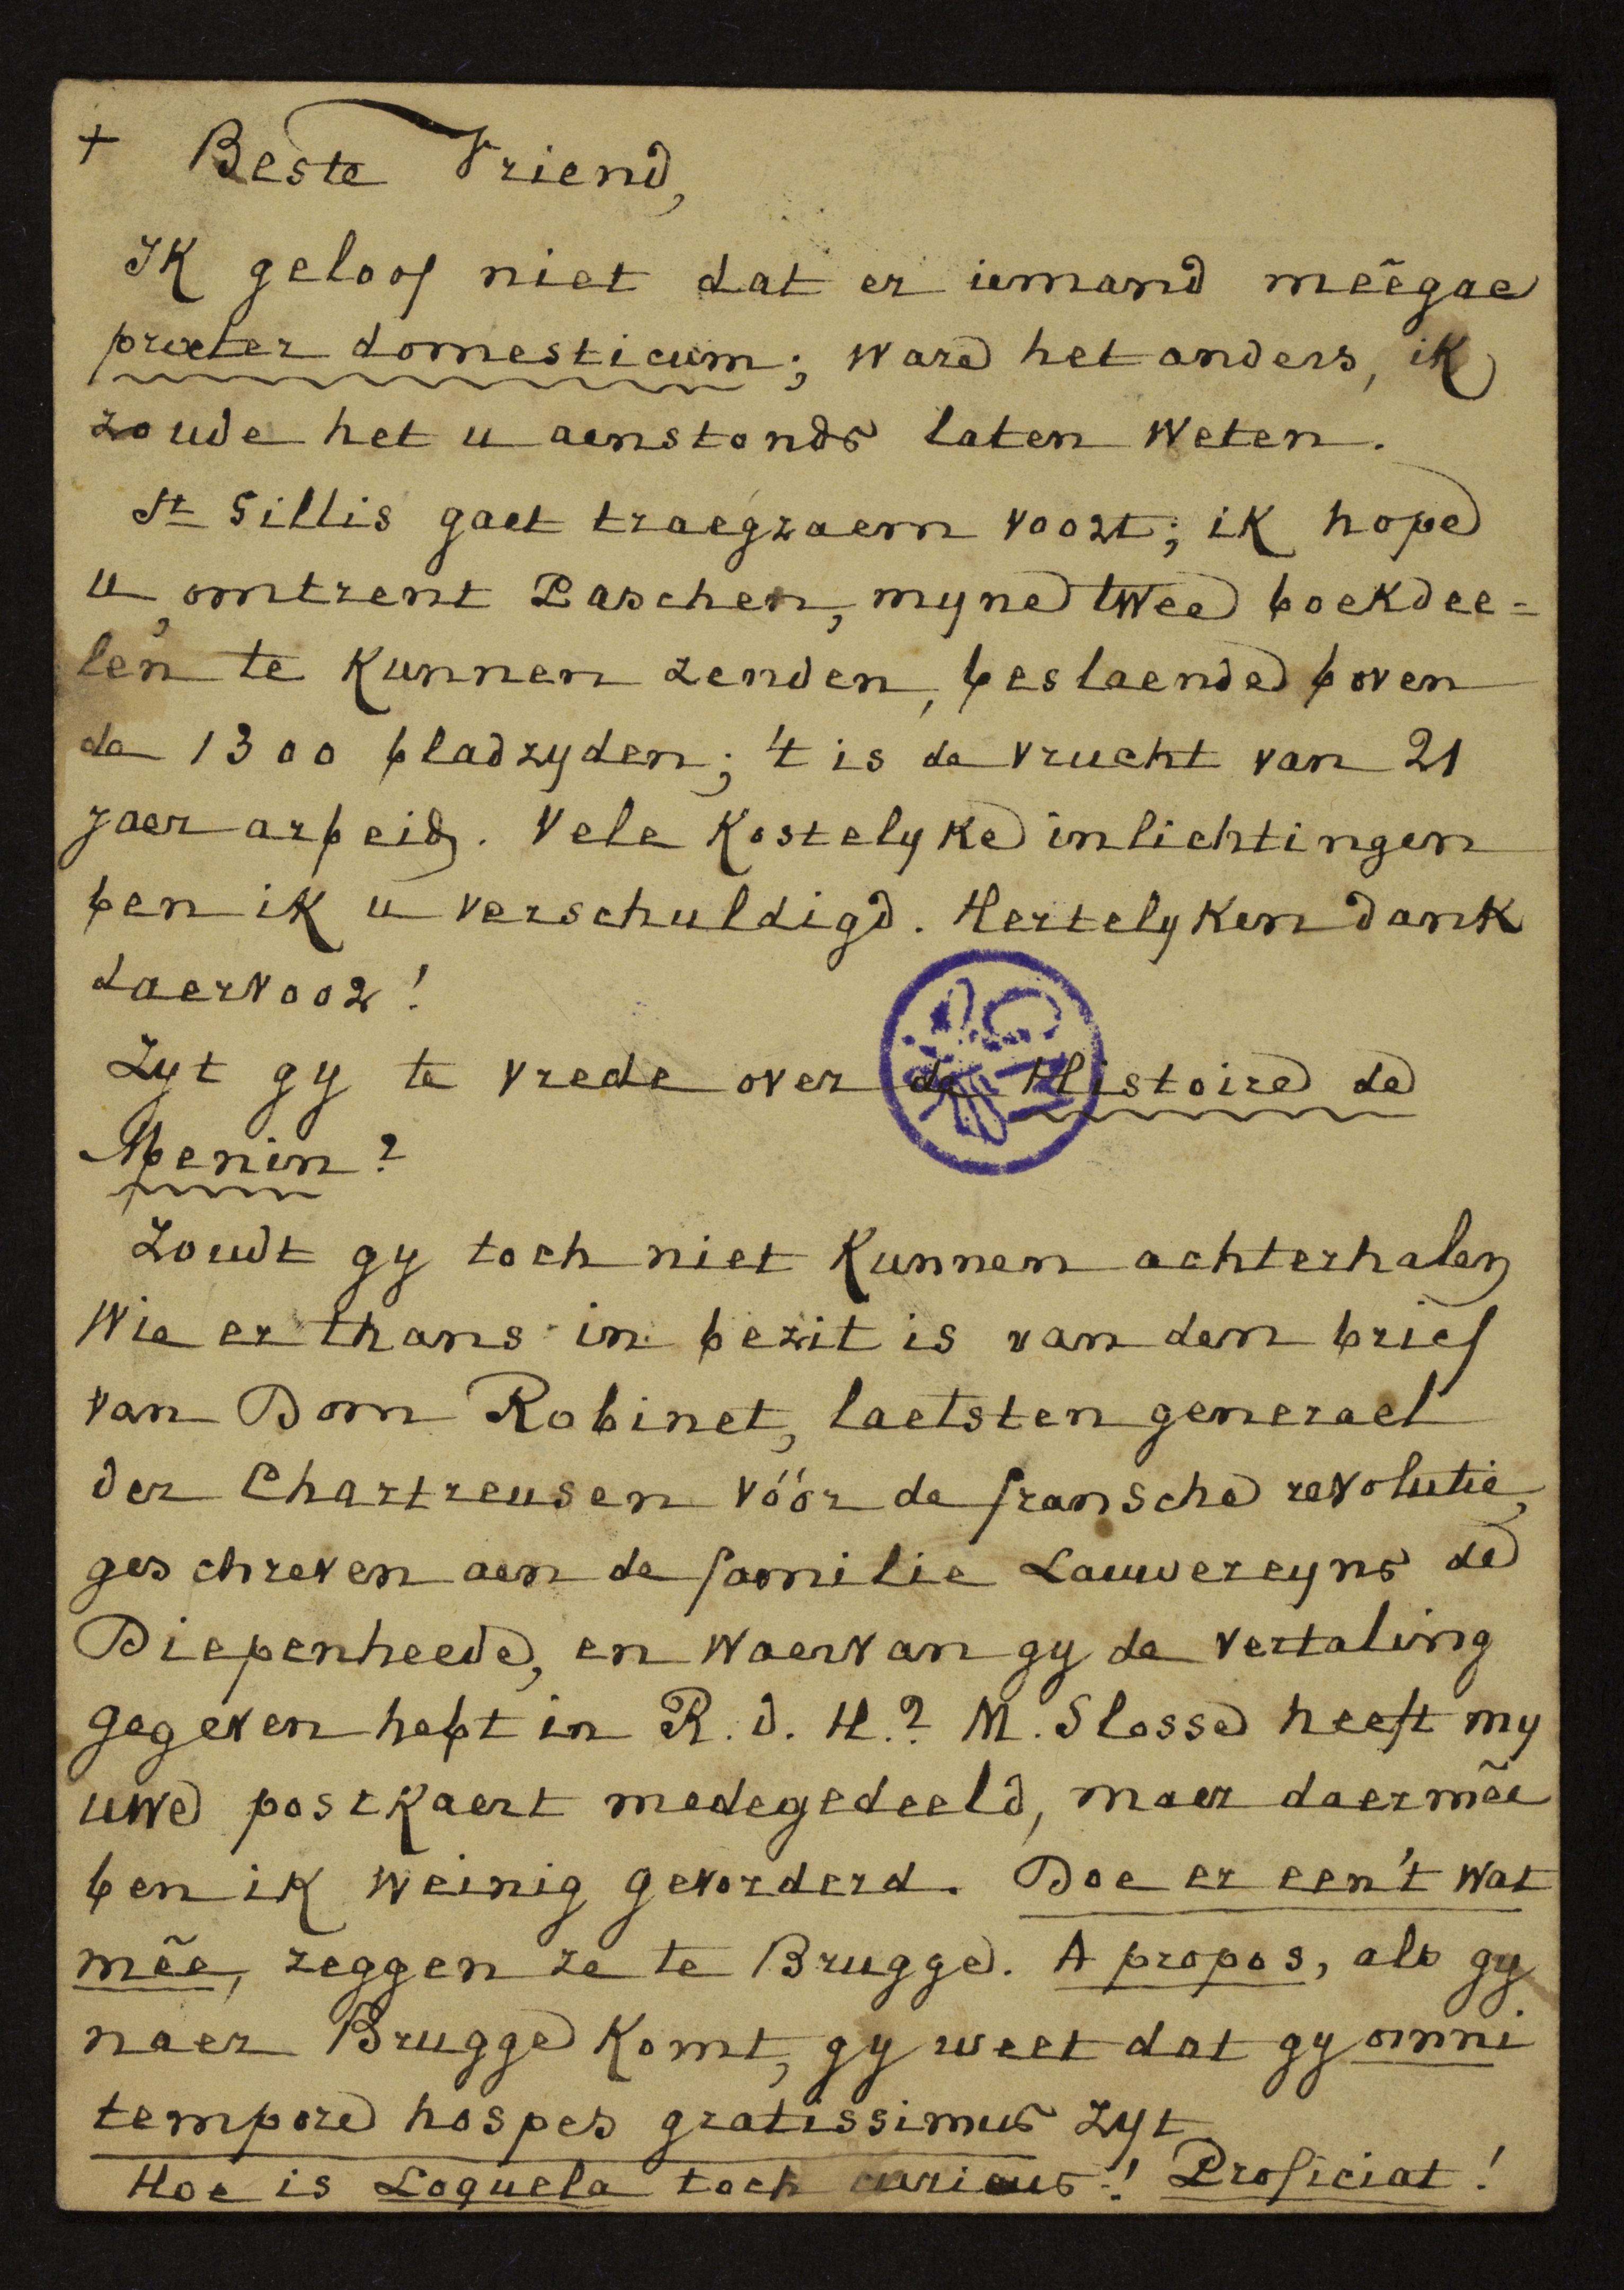 + Beste Vriend,
Ik geloof niet dat er iemand meêgae
præter domesticum; ware het anders, ik
zoude het u aenstonds laten weten.
St Gillis gaet traegzaem voort; ik hope
u, omtrent Paschen, myne twee boekdee=
len te kunnen zenden, beslaende boven
de 1300 bladzyden; 't is de vrucht van 21
jaer arbeid. Vele kostelyke inlichtingen
ben ik u verschuldigd. Hertelyken dank
daervoor!
Zyt gy te vrede over de Histoire de
Menin?
Zoudt gy toch niet kunnen achterhalen
wie er thans in bezit is van den brief
van Dom Robinet, laetsten generael
der Chartreusen vóór de fransche revolutie,
geschreven aen de familie Lauwereyns de
Diepenheede, en waervan gy de vertaling
gegeven hebt in R. d. H.? M. Slosse heeft my
uwe postkaert medegedeeld, maer daermêe
ben ik weinig gevorderd. Doe er een't wat
mêe, zeggen ze te Brugge. A propos, als gy
naer Brugge komt, gy weet dat gy omni
tempore hospes gratissimus zyt
Hoe is Loquela toch curieus! Proficiat!